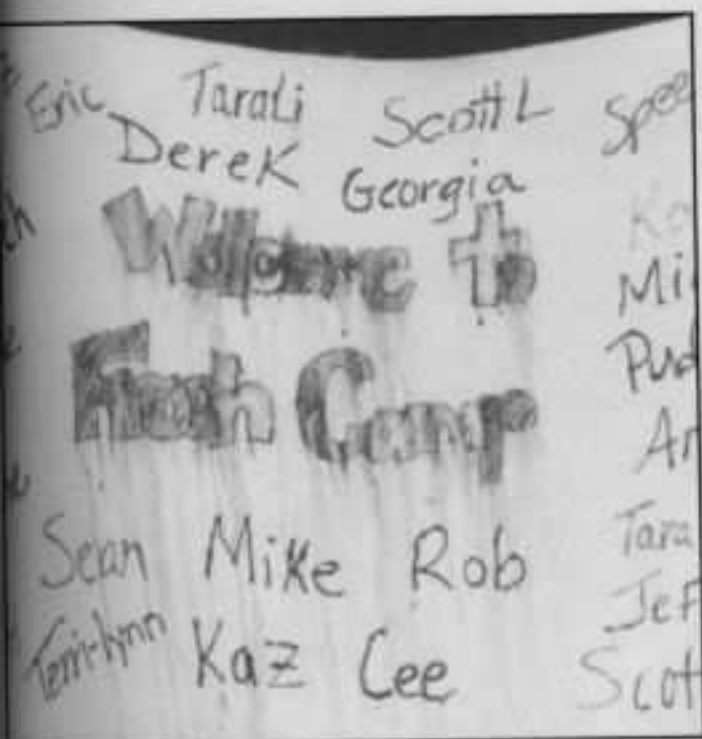 Eric Tarali Scott L
Derek Georgia
Welcome to
Frosh Camp
Sean Mike Rob Tara
Terri-lynn Kaz Cee